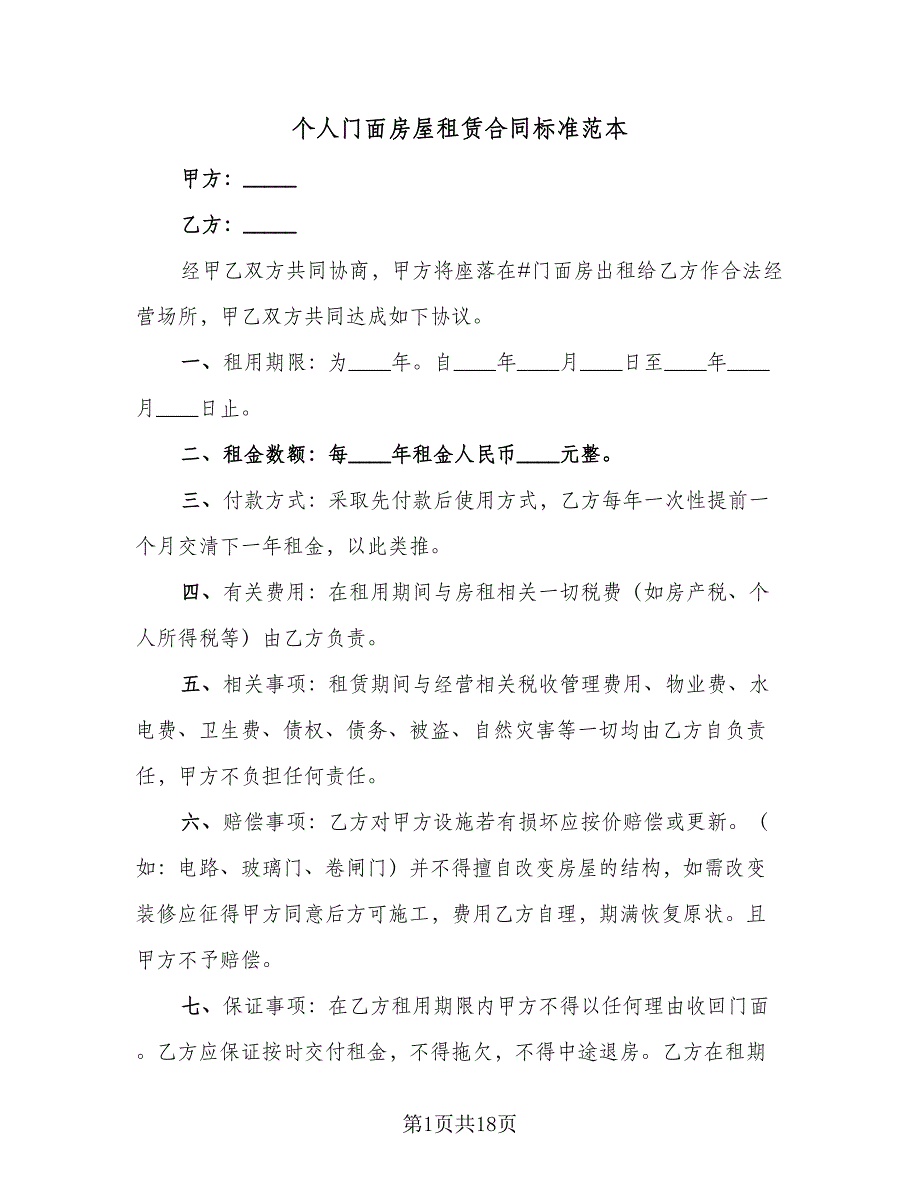 个人门面房屋租赁合同标准范本
甲方：_____
乙方：_____
经甲乙双方共同协商，甲方将座落在#门面房出租给乙方作合法经
营场所，甲乙双方共同达成如下协议。
一、租用期限：为____年。自____年____月____日至____年____
月____日止。
二、租金数额：每____年租金人民币____元整。
三、付款方式：采取先付款后使用方式，乙方每年一次性提前一
个月交清下一年租金，以此类推。
四、有关费用：在租用期间与房租相关一切税费（如房产税、个
人所得税等）由乙方负责。
五、相关事项：租赁期间与经营相关税收管理费用、物业费、水
电费、卫生费、债权、债务、被盗、自然灾害等一切均由乙方自负责
任，甲方不负担任何责任。
六、赔偿事项：乙方对甲方设施若有损坏应按价赔偿或更新。（
如：电路、玻璃门、卷闸门）并不得擅自改变房屋的结构，如需改变
装修应征得甲方同意后方可施工，费用乙方自理，期满恢复原状。且
甲方不予赔偿。
七、保证事项：在乙方租用期限内甲方不得以任何理由收回门面
。乙方应保证按时交付租金，不得拖欠，不得中途退房。乙方在租期
第1页共18页